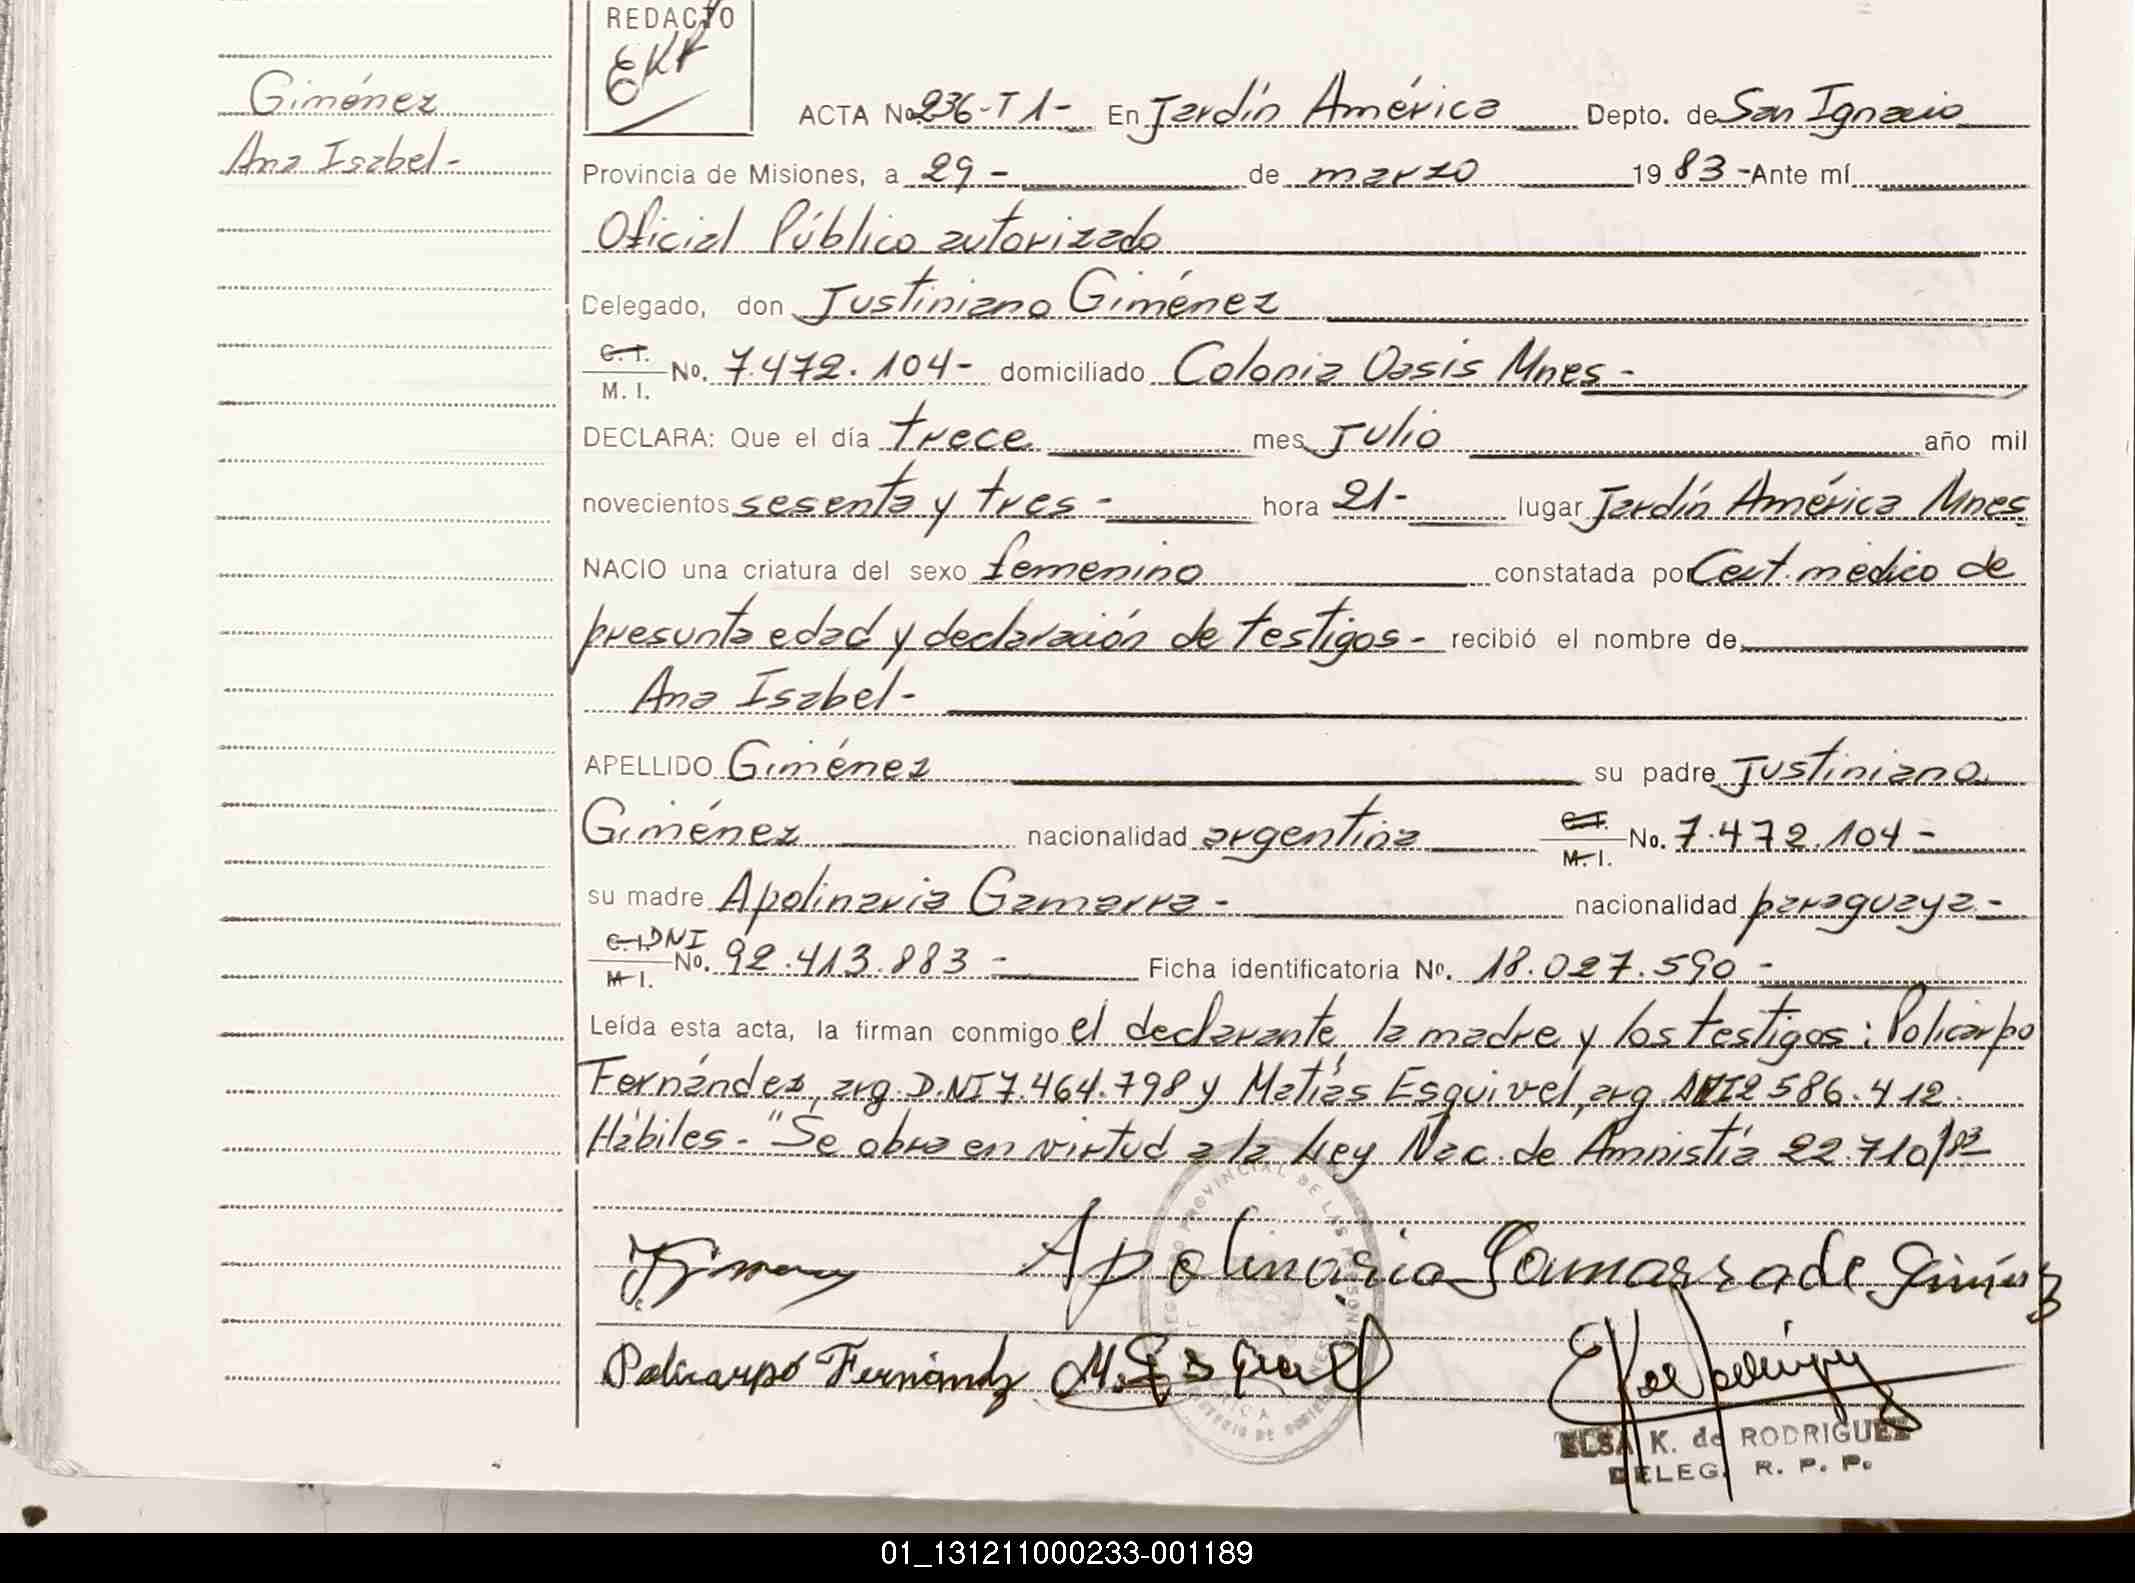 REDACTO
EKR
Giménez
Ana Isabel-
ACTA No. 236-T1- En Jardín América Depto. de San Ignacio
Provincia de Misiones, a 29- de marzo 19 83-Ante mí
Oficial Público autorizado
Delegado, don Justiniano Giménez
C. I.
M. I. No. 7.472.104- domiciliado Colonia Oasis Mnes-
DECLARA: Que el día trece mes julio año mil
novecientos sesenta y tres- hora 21- lugar Jardín América Mnes
NACIO una criatura del sexo femenino constatada por Cert. médico de
presunta edad y declaración de testigos- recibió el nombre de
Ana Isabel-
APELLIDO Giménez su padre Justiniano
Giménez nacionalidad argentina C. I. M. I. No. 7.472.104-
su madre Apolinaria Gamarra- nacionalidad paraguaya-
C. I. DNI
M. I. No. 92.413.883- Ficha identificatoria No. 18.027.590-
Leída esta acta, la firman conmigo el declarante, la madre y los testigos: Policarpo
Fernández, arg. D.NI 7.464.798 y Matías Esquivel, arg. DNI 2586.412.
Hábiles- "Se obra en virtud a la Ley Nac. de Amnistía 22.710/83
Apolinaria Gamarra de Giménez
Policarpo Fernández M. Esquivel
REGISTRO PROVINCIAL DE LAS PERSONAS
ELSA K. de RODRIGUEZ
DELEG. R. P. P.
01_131211000233-001189